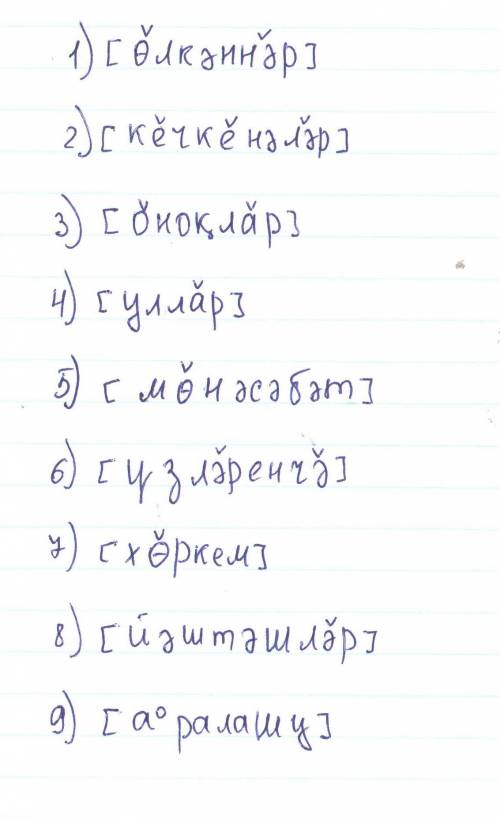 1) [ ө̆лкәннә̆р ]
2) [ кĕчкĕнәлә̆р ]
3) [ ŏноқлăр ]
4) [ уллăр ]
5) [ мө̆нәсәбәт ]
6) [ үзлә̆ренчә̆ ]
7) [ хө̆ркем ]
8) [ йәштәшлә̆р ]
9) [ а°ралашу ]